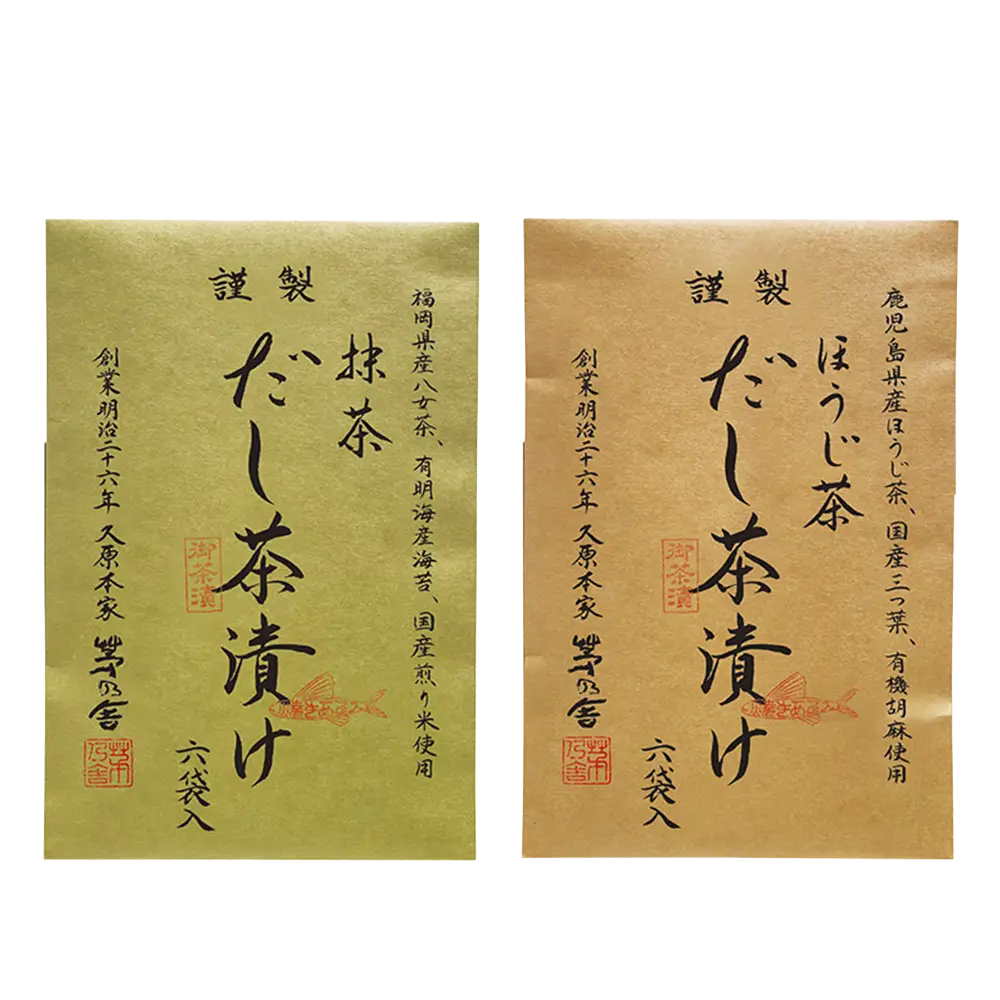 謹製
福岡県産八女茶、有明海産海苔、国産煎り米使用
抹茶
だし茶漬け
御茶漬
六袋入
創業明治二十六年 久原本家 茅乃舎
茅乃舎
謹製
鹿児島県産ほうじ茶、国産三つ葉、有機胡麻使用
ほうじ茶
だし茶漬け
御茶漬
六袋入
創業明治二十六年 久原本家 茅乃舎
茅乃舎